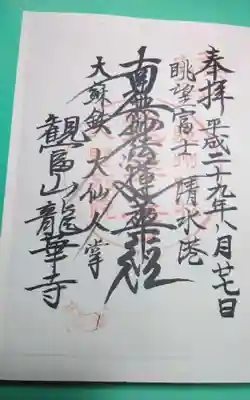 奉拝 平成二十九年八月廿七日
眺望富士 清水港
南無妙法蓮華経
大蘇鉄 大仙人掌
観富山龍華寺